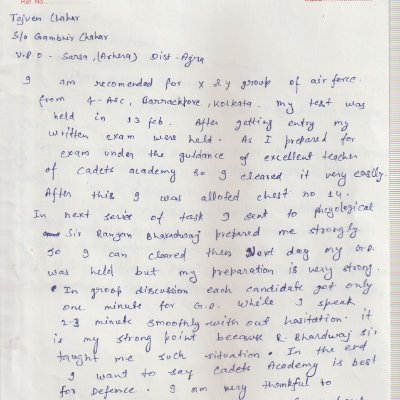 Ref. No.
Tejveer Chahar
S/o Gambhir Chahar
V.P.O - Sarsa, (Arhera) Dist - Agra
I am recomended for X & Y group of air force.
from 4 - Asc, Barrackpore, Kolkata. My test was
held in 13 feb. After getting entry my
written exam were held. As I prepared for
exam under the guidance of excellent teacher
of cadets academy so I cleared it very easily.
After this I was alloted chest no 14.
In next series of task I sent to phycological
Sir Ranjan Bharadwaj prepared me strongly
so I can cleared then Next day my G.D.
was held but my preparation is very strong.
• In groop discussion each candidate got only
one minute for G.D. while I speak
2-3 minute smoothly with out hasitation. it
is my strong point because R. Bhardwaj sir
taught me such situation • In the end
I want to say Cadets Academy is best
for Defence. I am very thankful to